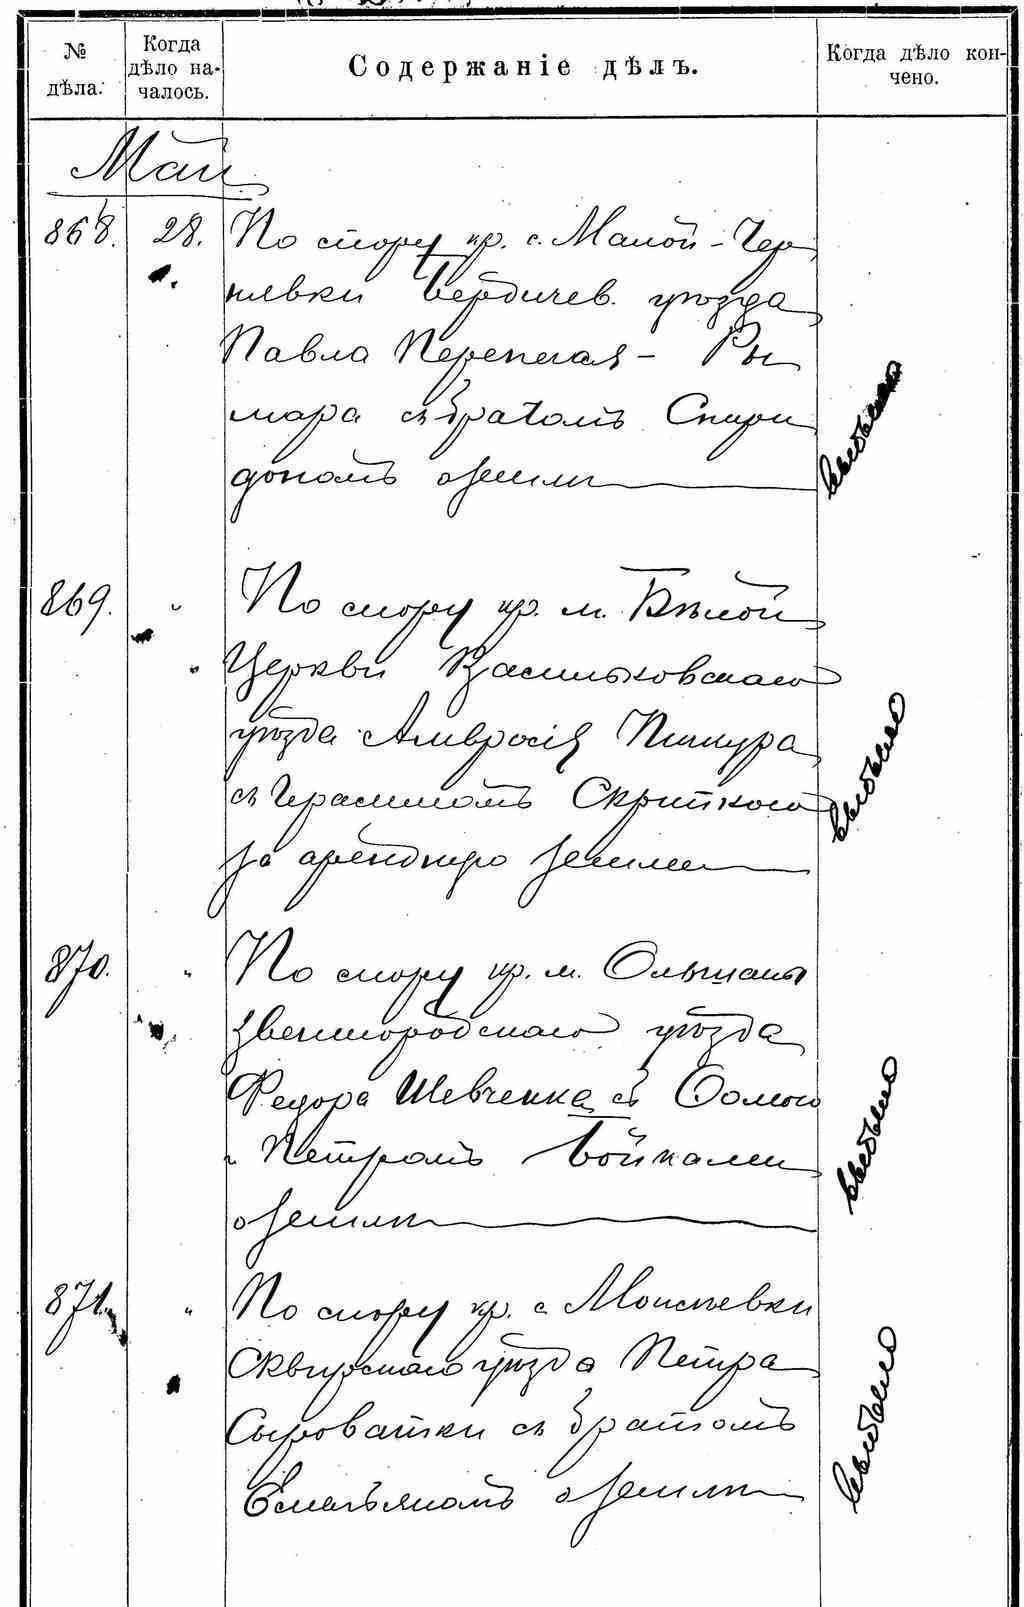 № дѣла.
Когда дѣло на-
чалось.
Содержаніе дѣлъ.
Когда дѣло кон-
чено.
Май
868. 28. По спору кр. с. Малой-Чер
нявки Бердичев. уѣзда
Павла Перепелая - Ры
мара съ братомъ Спири
дономъ о землѣ
выбыло
869. " По спору кр. м. Бѣлой
Церкви Васильковскаго
уѣзда Амвросія Пишура
съ Герасимомъ Скрипкою
за арендную землю
выбыло
870. " По спору кр. м. Ольшаны
Звенигородскаго уѣзда
Федора Шевченка съ Фомою
и Петромъ Бойками
о землѣ
выбыло
871. " По спору кр. с. Моисѣевки
Сквирскаго уѣзда Петра
Сыроватки съ братомъ
Емельяномъ о землѣ
выбыло